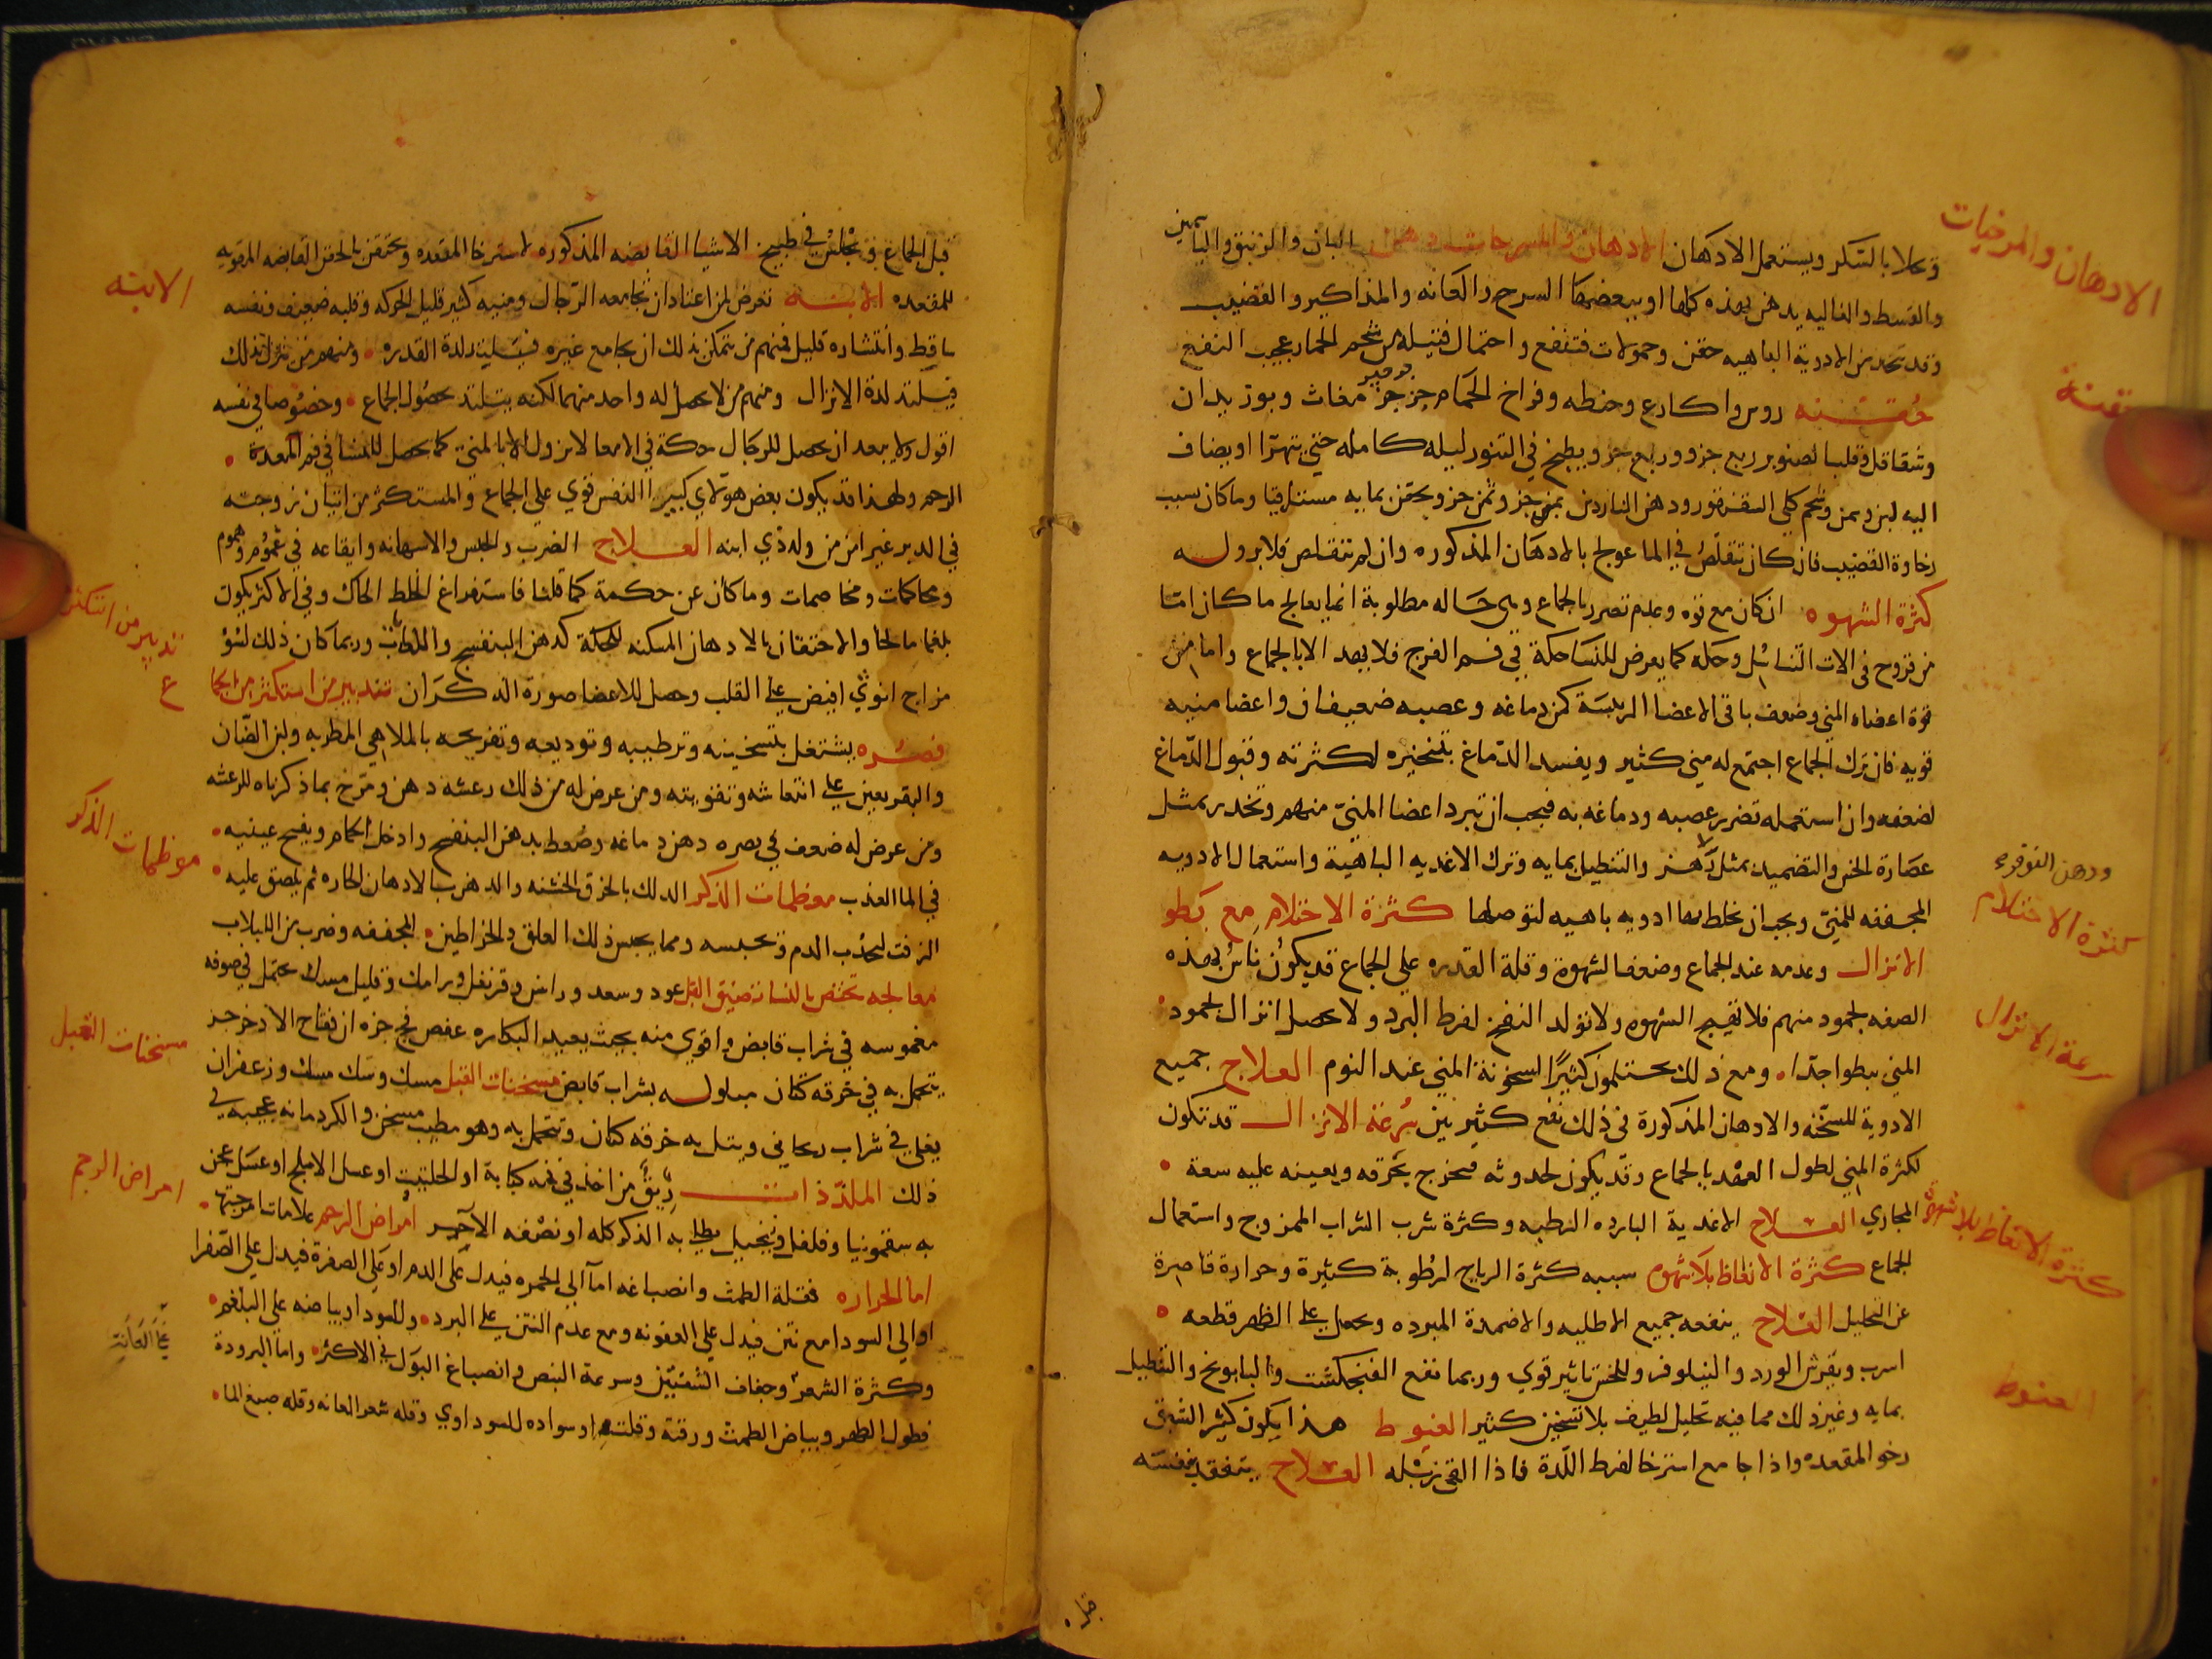 الادهان والمرخيات
وحلا بالسكر ويستعمل الادهان الادهان والمسرحات دهن البان والزنبق والياسمين
والقسط والغاليه يدهن بهذه كلها او ببعضها السرج والعانه والمذاكير والقضيب
وقد تتخذ من الادوية الباهيه حقن وحمولات فتنفع واحتمال فتيله من شحم الحمار عجيب النفع
حقنه روس واكارع وحنطه وفراخ الحمام جز جز مغاث وبوزيدان
وشقاقل وقلب الصنوبر ربع جز وربع جز ويطبخ في التنور ليله كامله حتى يتهرا ويضاف
اليه لبن وسمن وشحم كلي السقنقور ودهن الناردين ثمن جز وثمن جز ويحقن بمايه مستلقيا وما كان بسبب
رخاوة القضيب فان كان تتقلص في الما عولج بالادهان المذكوره وان لم تتقلص فلا برو له
كثرة الشهوه ان كان مع قوه وعدم تضرر بالجماع وهي حاله مطلوبة انما يعالج ما كان اما
من قروح في الات التناسل وحكه كما يعرض للنسا حكة في فم الفرج فلا يهدا الا بالجماع واما من
قوة اعضاه المني وضعف باقي الاعضا الريسة كمن دماغه وعصبه ضعيفان واعضا منيه
قويه فان ترك الجماع اجتمع له مني كثير ويفسد الدماغ بتبخيره لكثرته وقبول الدماغ
لضعفه وان استعمله تضرر عصبه ودماغه به فيجب ان تبرد اعضا المني منهم وتخدر بمثل
عصارة الخس والتضميد بمثله والتنطيل بمايه وترك الاغديه الباهية واستعمال الادويه
ودهن القوقوه
المجففه للمني ويجب ان يخلط بها ادويه باهيه لتوصلها كثرة الاحتلام مع بطو
كثرة الاحتلام
الانزال وعدمه عند الجماع وضعف الشهوة وقلة القدره على الجماع قد يكون ناس بهذه
الصفه لجمود منيهم فلا تهيج الشهوه ولا تولد النفخ لفرط البرد ولا يحصل انزال لجمود
سرعة الانزال
المني بطوا جدا ومع ذلك يحتلمون كثيرا لسخونة المني عند النوم العلاج جميع
الادوية المسخنه والادهان المذكورة في ذلك نفع كثير بين سرعة الانزال قد تكون
لكثرة المني لطول العهد بالجماع وقد يكون لحدوثه فيخرج بحرقه ويعينه عليه سعة
المجاري العلاج الاغدية البارده الرطبه وكثرة شرب الشراب الممزوج واستعمال
كثرة الانعاظ بلا شهوة
الجماع كثرة الانعاظ بلا شهوه سببه كثرة الرياح لرطوبة كثيرة وحرارة قاصرة
عن التحليل العلاج ينفعه جميع الاطليه والاضمدة المبرده ويحمل على الظهر قطعه
اسرب ويفرش الورد والنيلوفر وللخس تاثير قوي وربما نفع الفنجنكشت والبابونج والتنطيل
بمايه وغير ذلك مما فيه تحليل لطيف بلا تسخين كثير العذيوط هذا يكون كثير الشبق
رخو المقعده واذا جامع استرخا لفرط اللذة فاذا القى زبله العلاج يتفقد نفسه
قبل
قبل الجماع ويجلس في طبيخ الاشيا القابضه المذكوره لاسترخا المقعده ويحتقن بالحقن القابضه المقويه
الابنه
للمقعده الابنه تعرض لمن اعتاد ان تجامعه الرجال ومنيه كثير قليل الحركه وقلبه ضعيف ونفسه
ساقط وانتشاره قليل فمنهم من يتمكن بذلك ان يجامع غيره فيستلذ لذة القدره ومنهم من ينزل بذلك
فيستلذ لذة الانزال ومنهم من لا يحصل له واحد منهما لكنه يستلذ بحصول الجماع وخصوصا في نفسه
اقول ولا يبعد ان يحصل للرجال حكة في الامعا لا تزول الا بالمني كما يحصل للنسا في فم المعدة
الرحم ولهذا قد يكون بعض هولاي كبير النفس قوي على الجماع والمستكثر من اتيان زوجته
في الدبر غير امن من ولد ذي ابنه العلاج الضرب والحبس والاسهانه وايقاعه في غموم وهموم
ومحاكمات ومخاصمات وما كان عن حكة كما قلنا فاستفراغ الخلط الحاك وفي الاكثر يكون
بلغما مالحا والاحتقان بالادهان المسكنه للحكة كدهن البنفسج واللعابات وربما كان ذلك لسو
تدبير من استكثر
مزاج انوثي افيض على القلب وحصل للاعضا صورة الذكران تدبير من استكثر من الجماع
فضره يشتغل بتسخينه وترطيبه وتوديعه وتفريحه بالملاهي المطربه ولبن الضان
والبقر يعين على انتعاشه وتقويته ومن عرض له من ذلك رعشه دهن ومرخ بما ذكرناه للرعشه
ومن عرض له ضعف في بصره دهن دماغه وسعط بدهن البنفسج وادخل الحمام ويفتح عينيه
معظمات الذكر
في الما العذب معظمات الذكر الدلك بالخرق الخشنه والدهن بالادهان الحاره ثم يلصق عليه
الزفت ليجذب الدم ويحبسه ومما يحبس ذلك العلق والخراطين المجففه وضرب من اللبلاب
معالجه تختص بالنسا تضيق القبل عود وسعد وراسن وقرنفل ورامك وقليل مسك تحتمل في صوفه
مغموسه في شراب قابض واقوي منه بحيث يعيد البكاره عفص فج جزه ان فقاح الاذخر جز
مسخنات القبل
يتحمل به في خرقه كتان مبلوله بشراب قابض مسخنات القبل مسك وسك مسك وزعفران
يغلى في شراب ريحاني ويتل به خرقه كتان ويتحمل به وهو مطيب مسخن والكردمانه عجيبه في
ذلك الملذذات ريق من اخذ في فمه كبابة او الحلتيت او عسل الاملج او عسل عجن
امراض الرحم
به سقمونيا وفلفل وزنجبيل يطلى به الذكر كله او نصفه الاخير امراض الرحم علامات امزجتها
اما الحراره فقلة الطمث وانصباغه اما الى الحمره فيدل على الدم او على الصفرة فيدل على الصفرا
او الى السودا مع نتن فيدل على العفونه ومع عدم النتن على البرد والسودا وبياضه على البلغم
على العانه
وكثرة الشعر وجفاف الشفتين وسرعة النبض وانصباغ البول في الاكثر واما البرودة
فطول الطهر وبياض الطمث ورقته وقلته او سواده للسوداوي وقله شعر العانه وقله صبغ الما